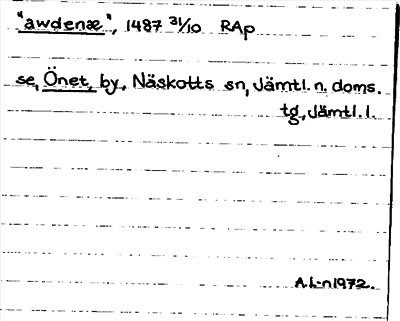 "awdenæ", 1487 31/10 RAp
se, Önet, by, Näskotts sn, Jämtl. n. doms.
tg., Jämtl. l.
A.L-n 1972.